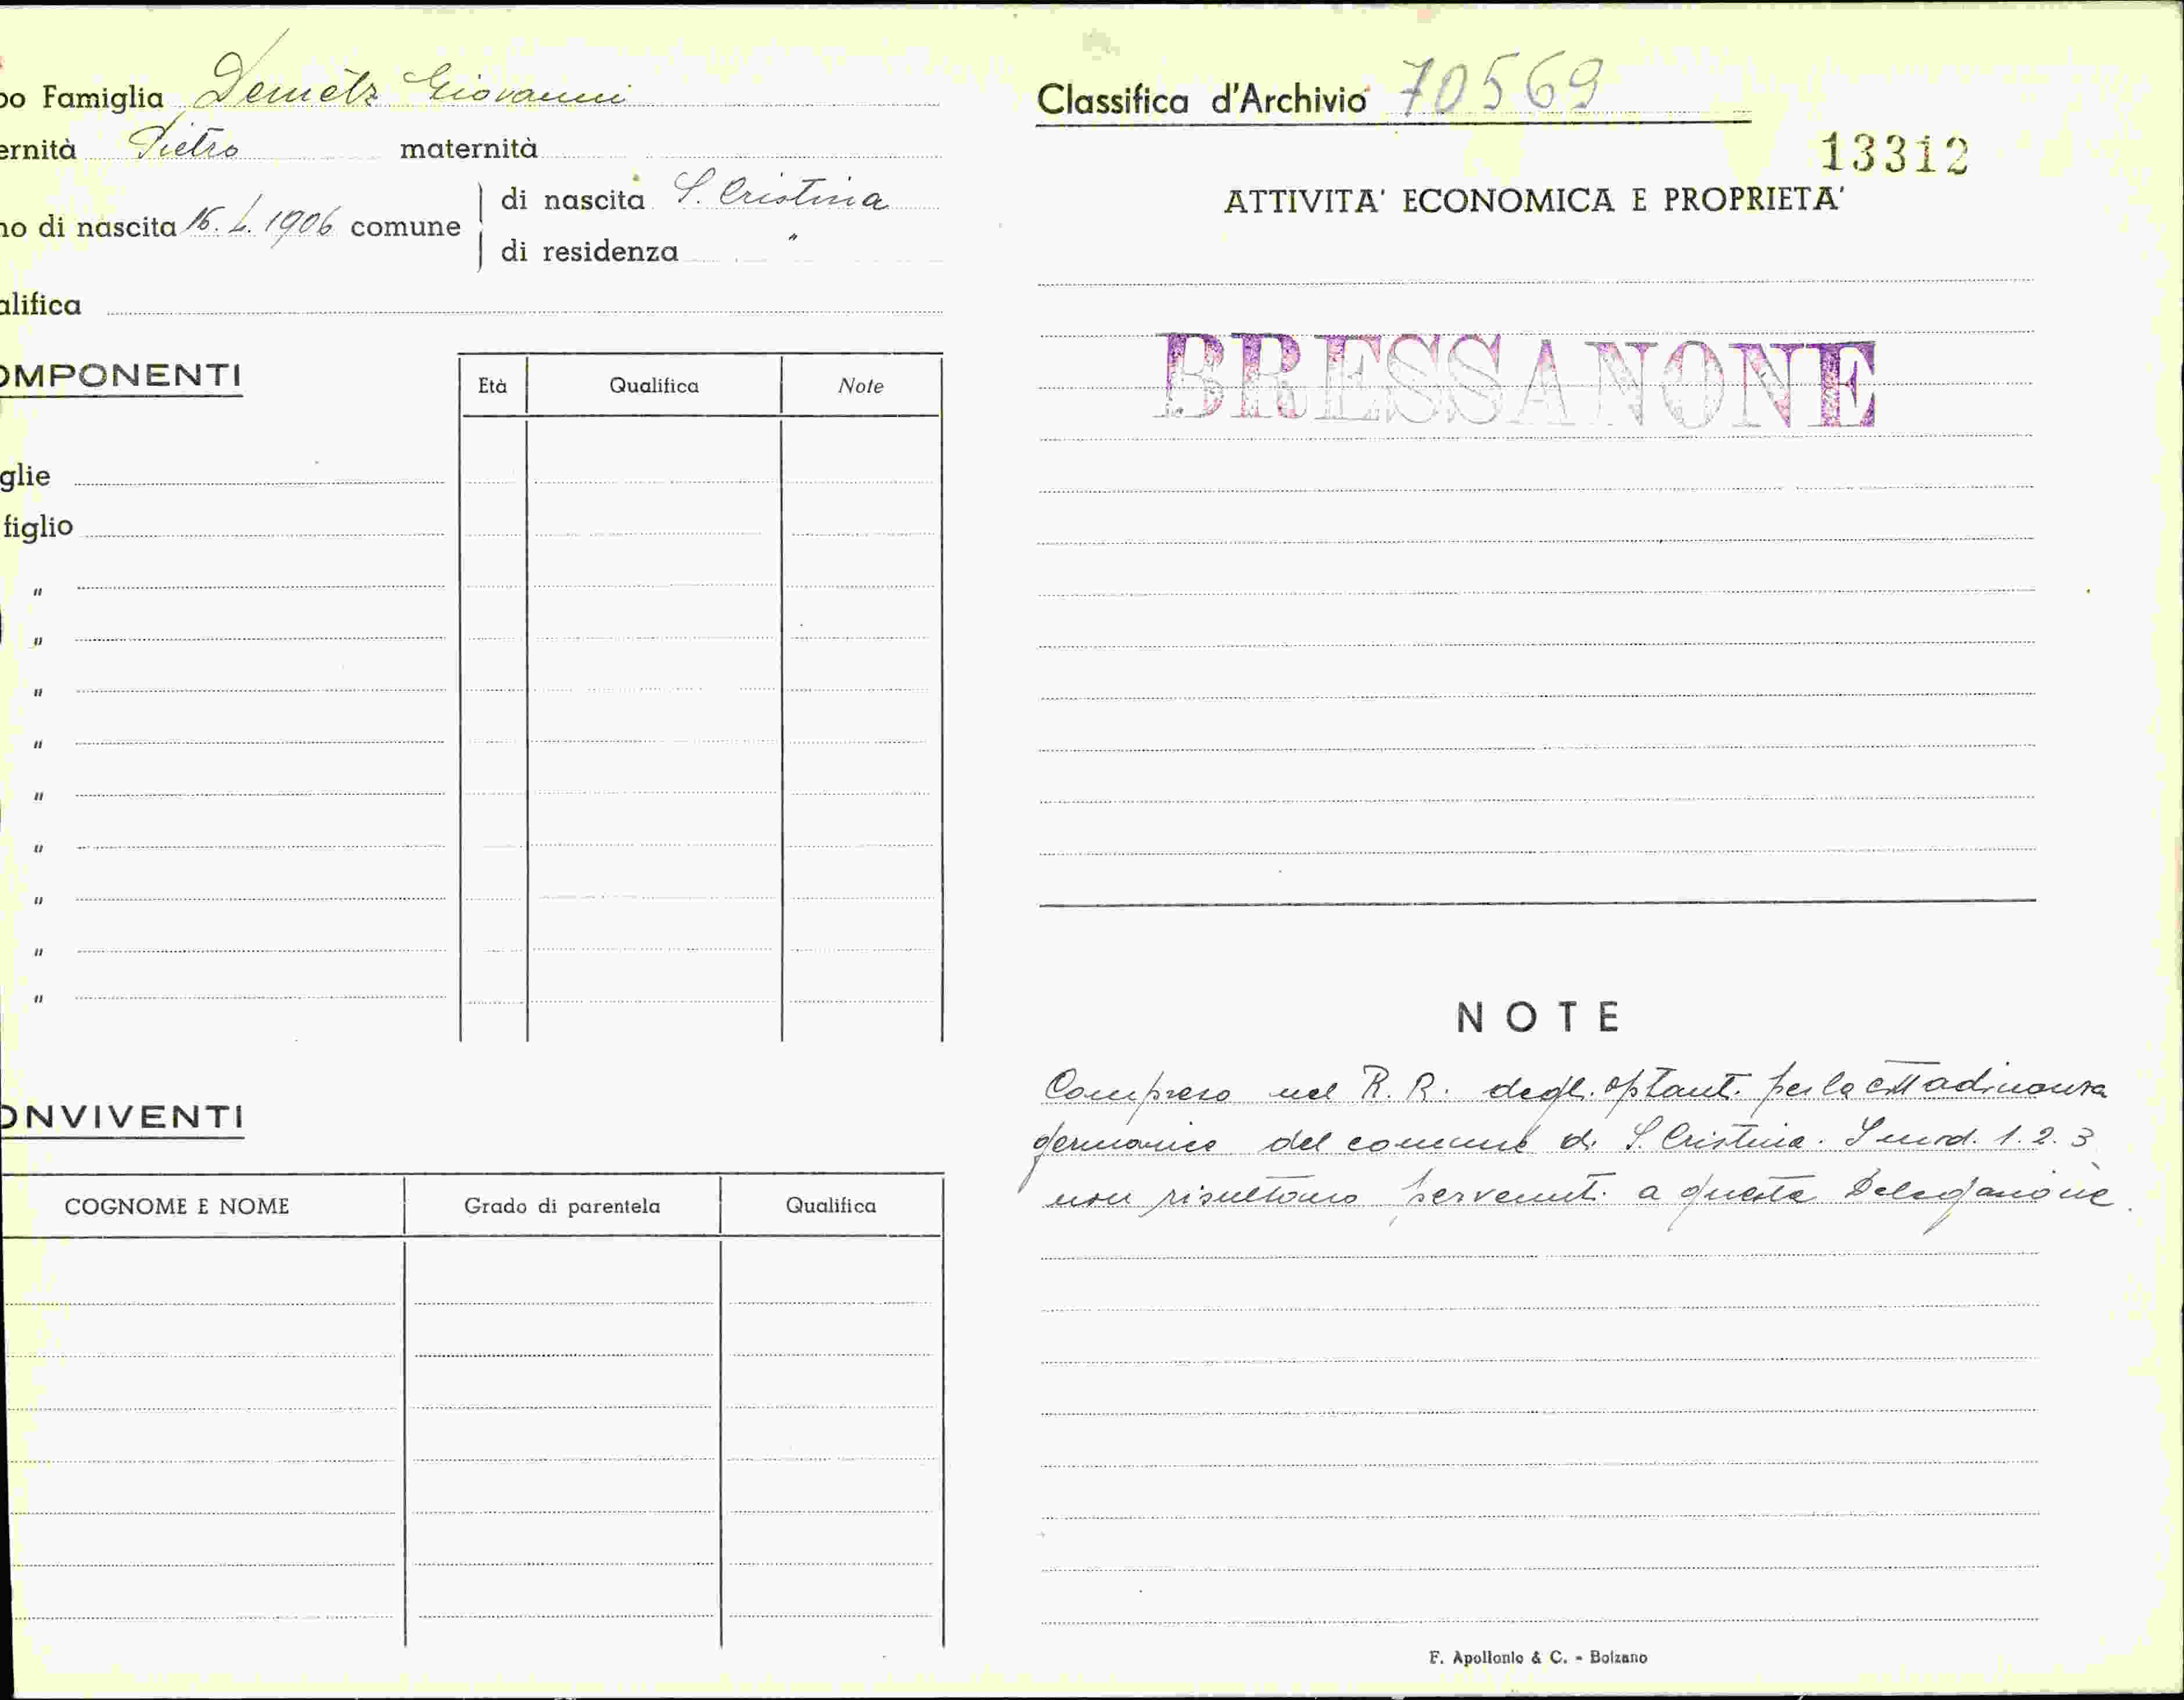 po Famiglia Demetz Giovanni
ernità Pietro maternità
no di nascita 1906 comune
di nascita S. Cristina
di residenza "
alifica
OMPONENTI
Età Qualifica Note
glie
figlio
"
"
"
"
"
"
"
"
"
ONVIVENTI
COGNOME E NOME Grado di parentela Qualifica
Classifica d'Archivio 70569
13312
ATTIVITA' ECONOMICA E PROPRIETA'
BRESSANONE
NOTE
Compreso nel R. R. degli optanti per la cittadinanza
germanica del comune di S. Cristina. I mod. 1. 2. 3
non risultano pervenuti a questa Delegazione.
F. Apollonio & C. - Bolzano